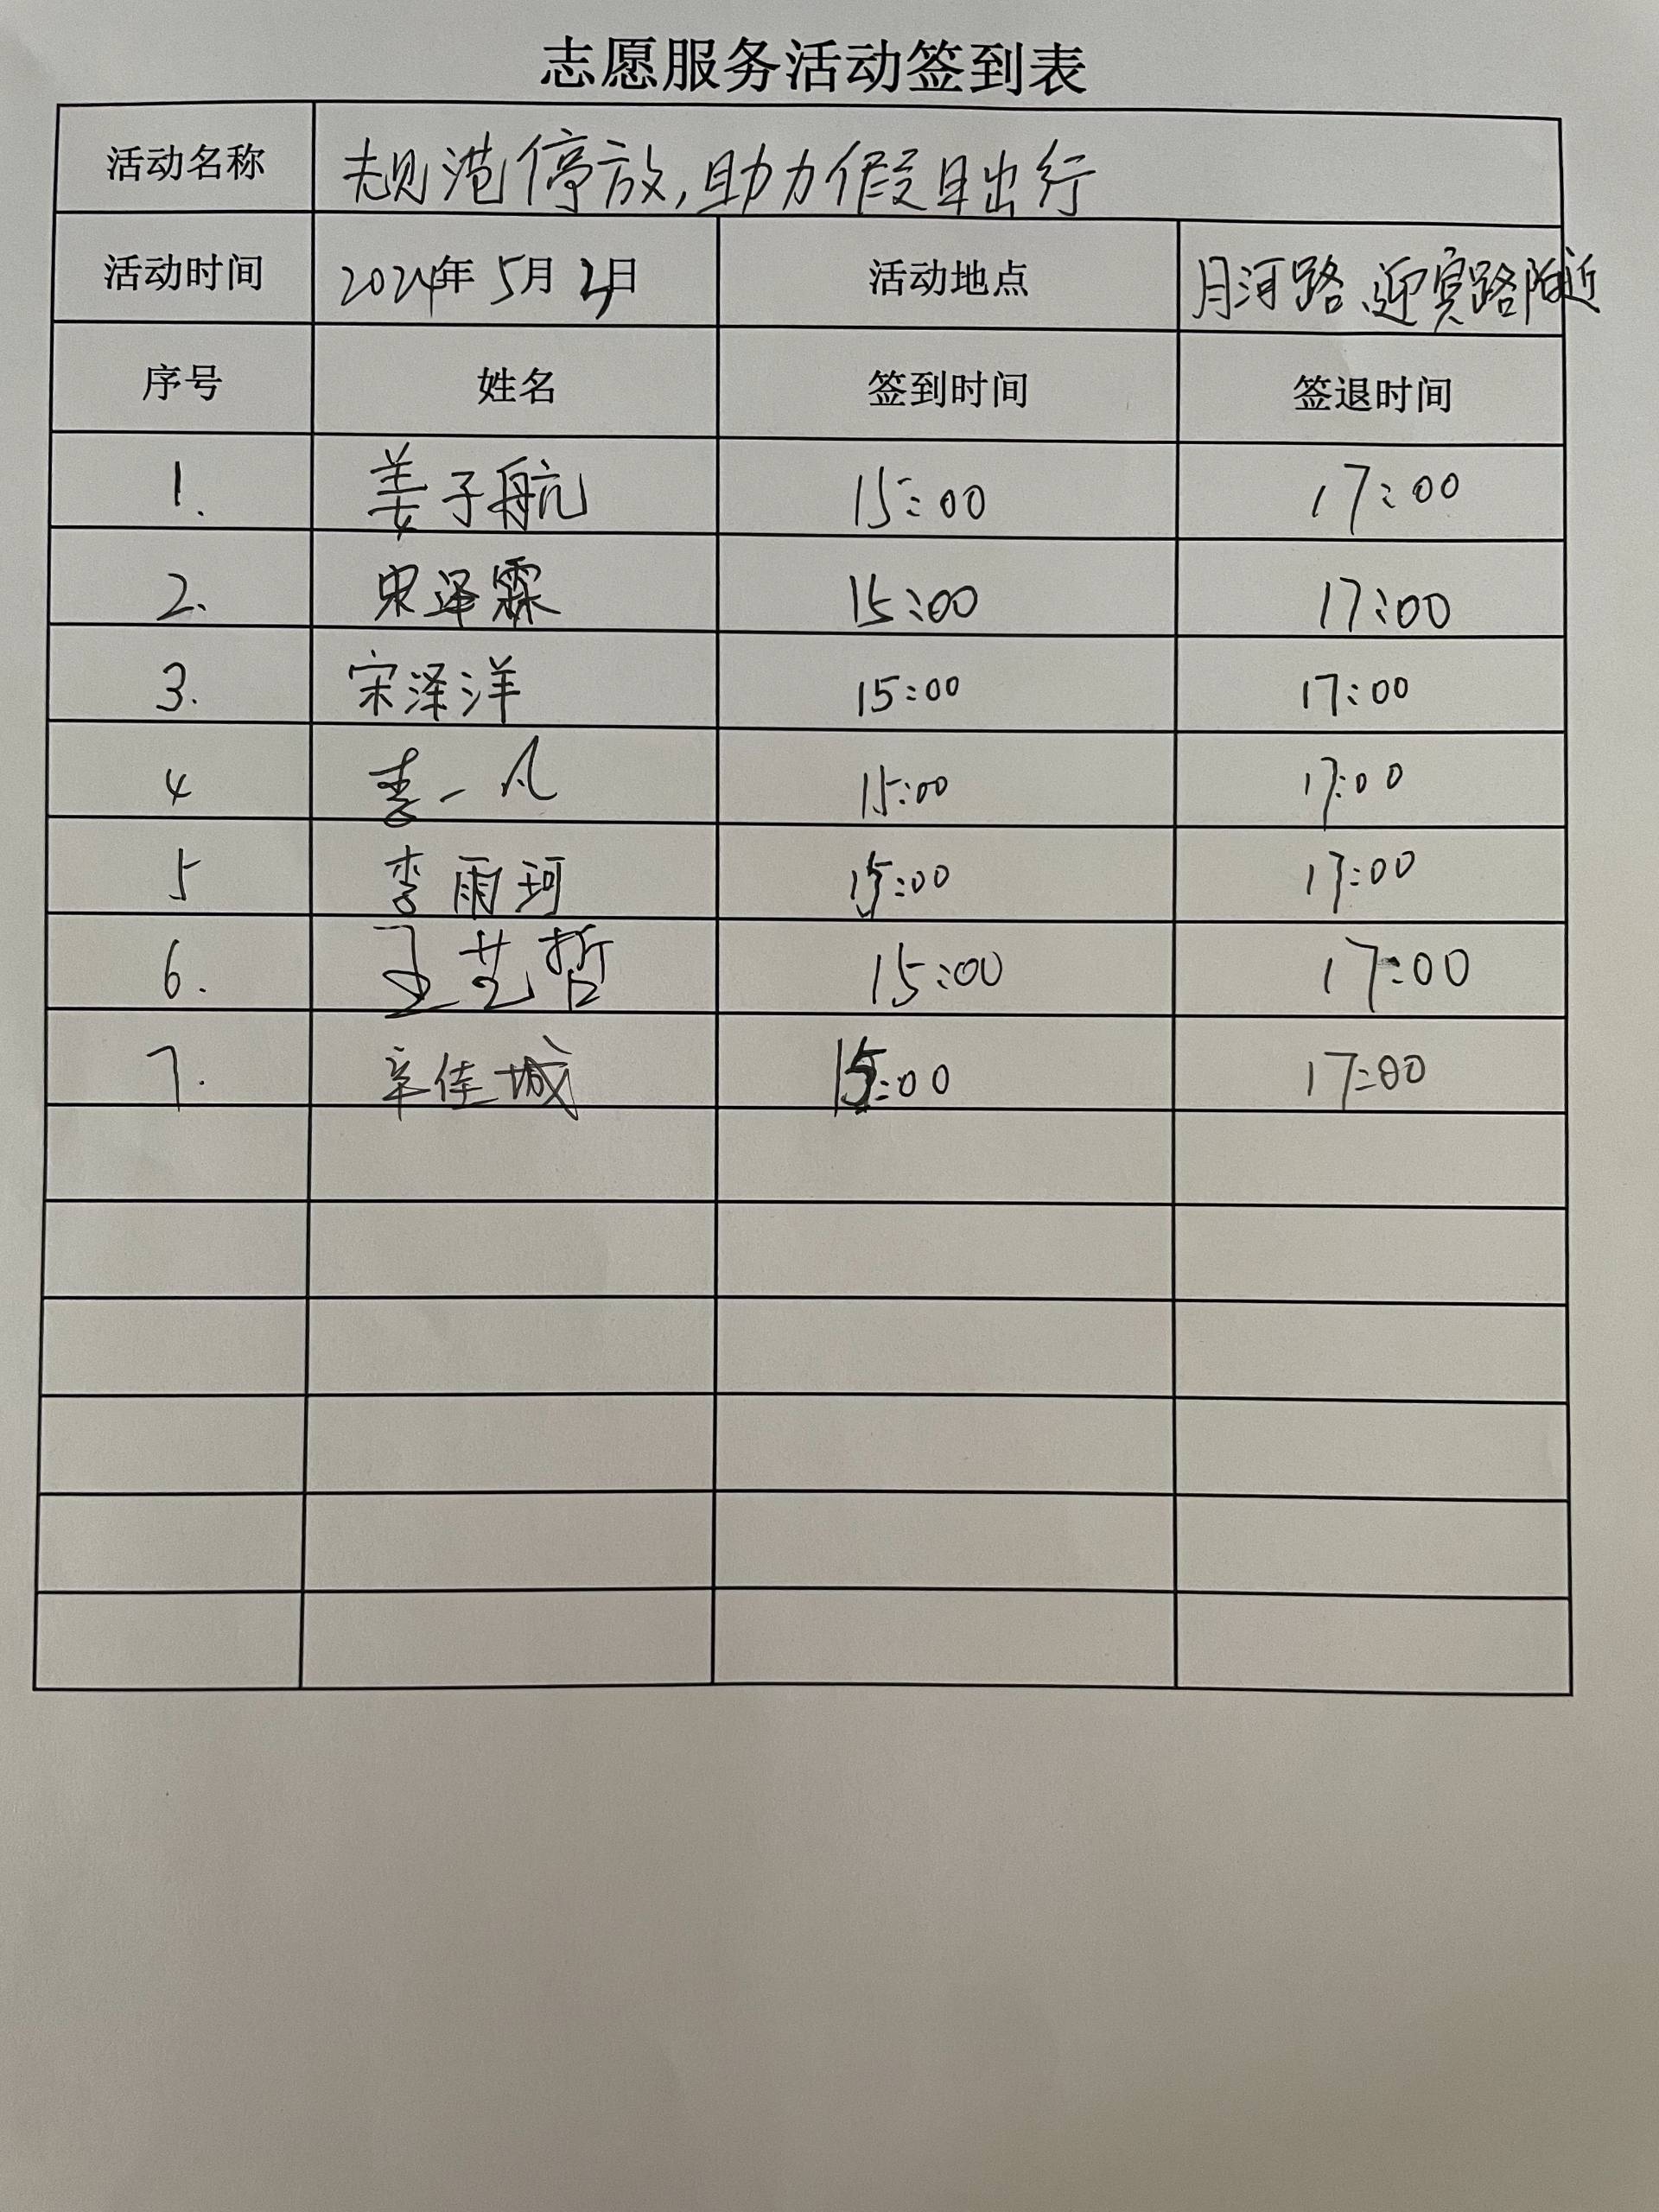 志愿服务活动签到表
活动名称 规范停放,助力假日出行
活动时间 2024年 5月 日 活动地点 月河路、迎宾路附近
序号 姓名 签到时间 签退时间
1. 姜子航 15:00 17:00
2. 宋泽霖 15:00 17:00
3. 宋泽洋 15:00 17:00
4 李一凡 15:00 17:00
5 李雨珂 15:00 17:00
6. 王艺哲 15:00 17:00
7. 辛佳城 15:00 17:00